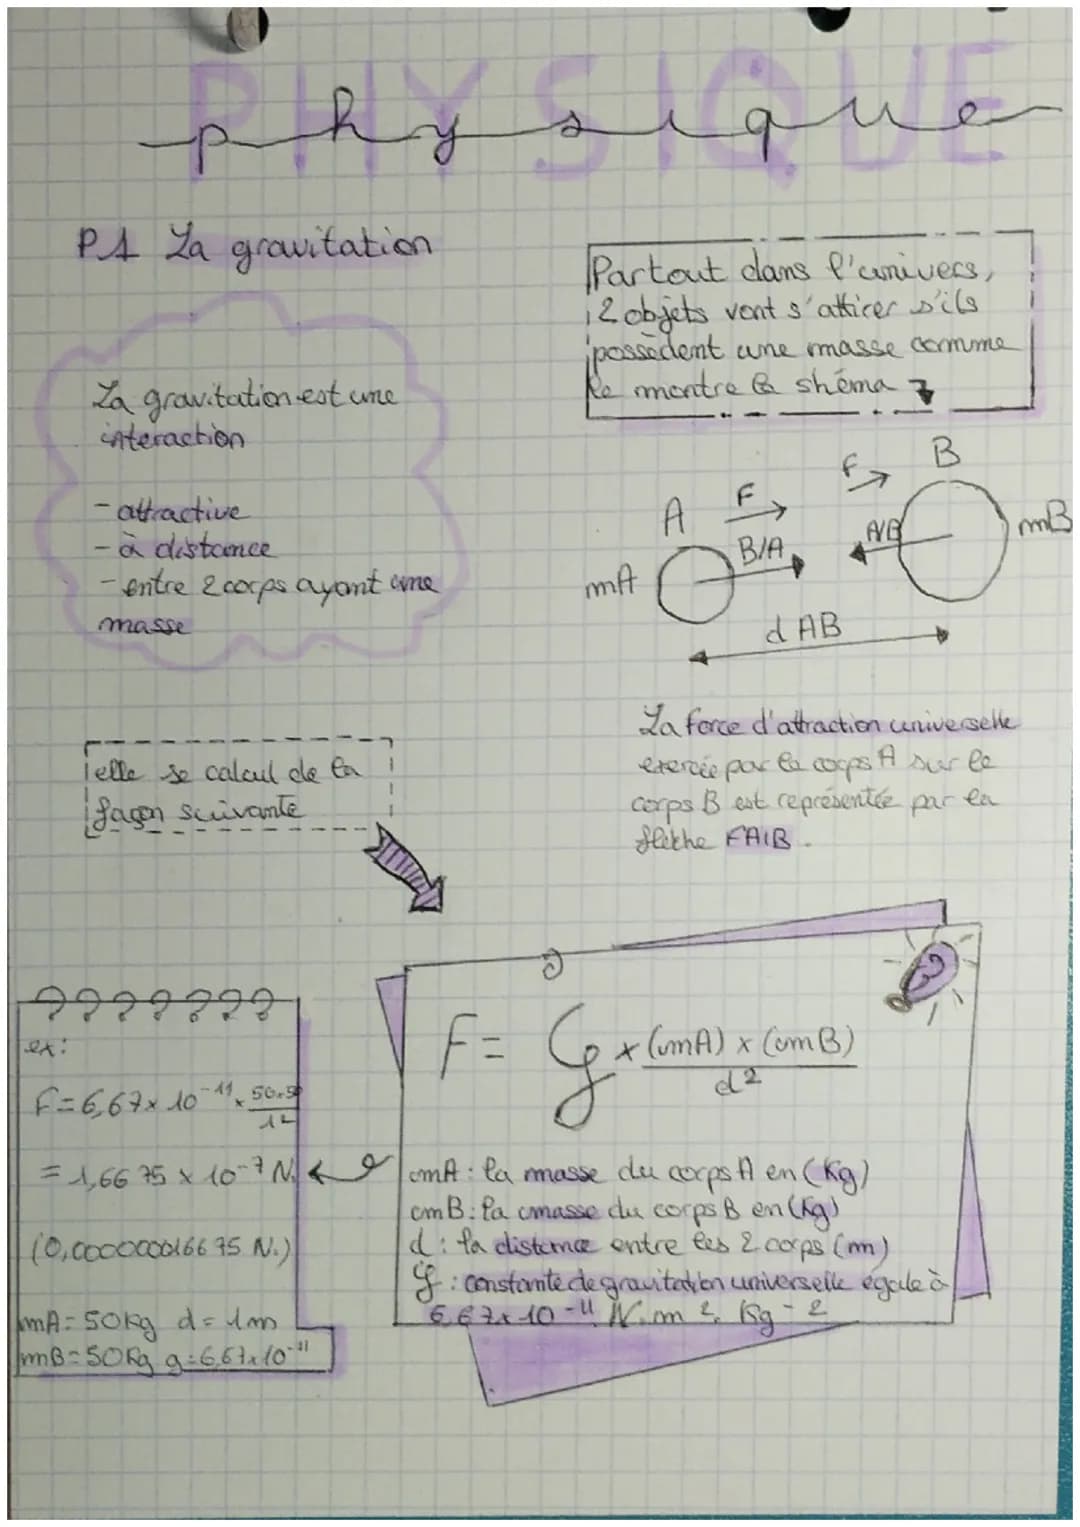 PHYSIQUE
physique
P1 La gravitation
Partout dans l'univers,
2 objets vont s'attirer s'ils
possèdent une masse comme
le montre le shéma
La gravitation est une
interaction
- attractive
- à distance
- entre 2 corps ayant une
masse
A
F
B/A
mA
F
A/B
B
mB
d AB
La force d'attraction universelle
exercée par le corps A sur le
corps B est représentée par la
flèche FA/B.
elle se calcul de la
façon suivante
F = G × (mA) × (mB)
d²
mA : la masse du corps A en (Kg)
mB : la masse du corps B en (Kg)
d : la distance entre les 2 corps (m)
G : constante de gravitation universelle égale à
6,67 × 10⁻¹¹ N.m².Kg-2
ex :
F = 6,67 × 10⁻¹¹ × 50×50
1²
= 1,6675 × 10⁻⁷ N.
(0,00000016675 N.)
mA = 50kg d = 1m
mB = 50Kg g = 6,67×10⁻¹¹